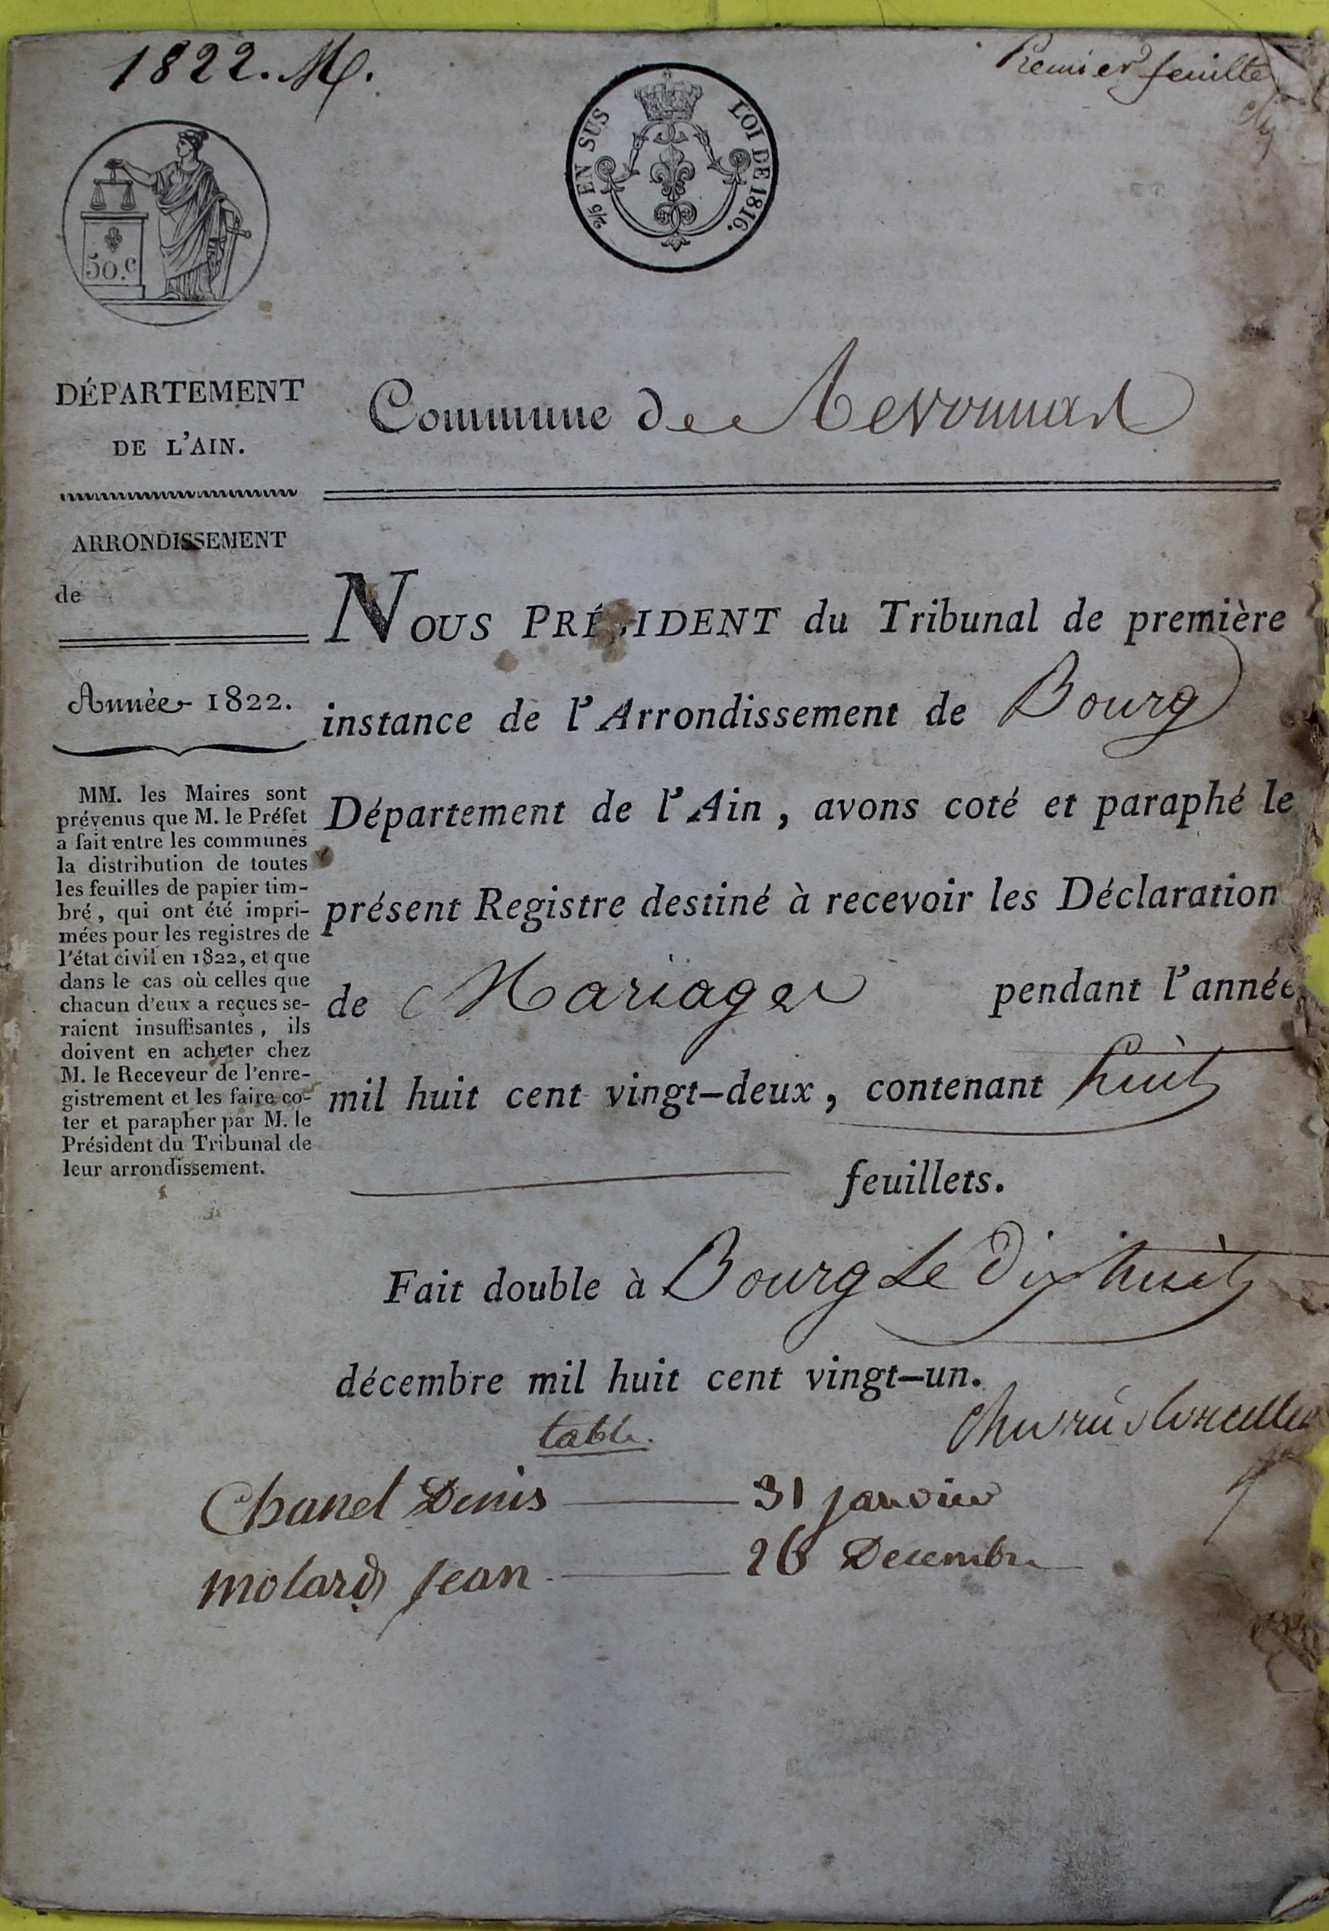 1822. M.
Premier feuillet
2/5 EN SUS
LOI DE 1816.
50.c
DÉPARTEMENT
DE L'AIN.
ARRONDISSEMENT
de
Année 1822.
MM. les Maires sont
prévenus que M. le Préfet
a fait entre les communes
la distribution de toutes
les feuilles de papier tim-
bré, qui ont été impri-
mées pour les registres de
l'état civil en 1822, et que
dans le cas où celles que
chacun d'eux a reçues se-
raient insuffisantes, ils
doivent en acheter chez
M. le Receveur de l'enre-
gistrement et les faire co-
ter et parapher par M. le
Président du Tribunal de
leur arrondissement.
Commune de Revonnas
NOUS PRÉSIDENT du Tribunal de première
instance de l'Arrondissement de Bourg
Département de l'Ain, avons coté et paraphé le
présent Registre destiné à recevoir les Déclaration
de Mariages pendant l'année
mil huit cent vingt-deux, contenant huit
feuillets.
Fait double à Bourg Le dix huit
décembre mil huit cent vingt-un.
table.
Chanel Denis 31 janvier
molard Jean 26 Decembre